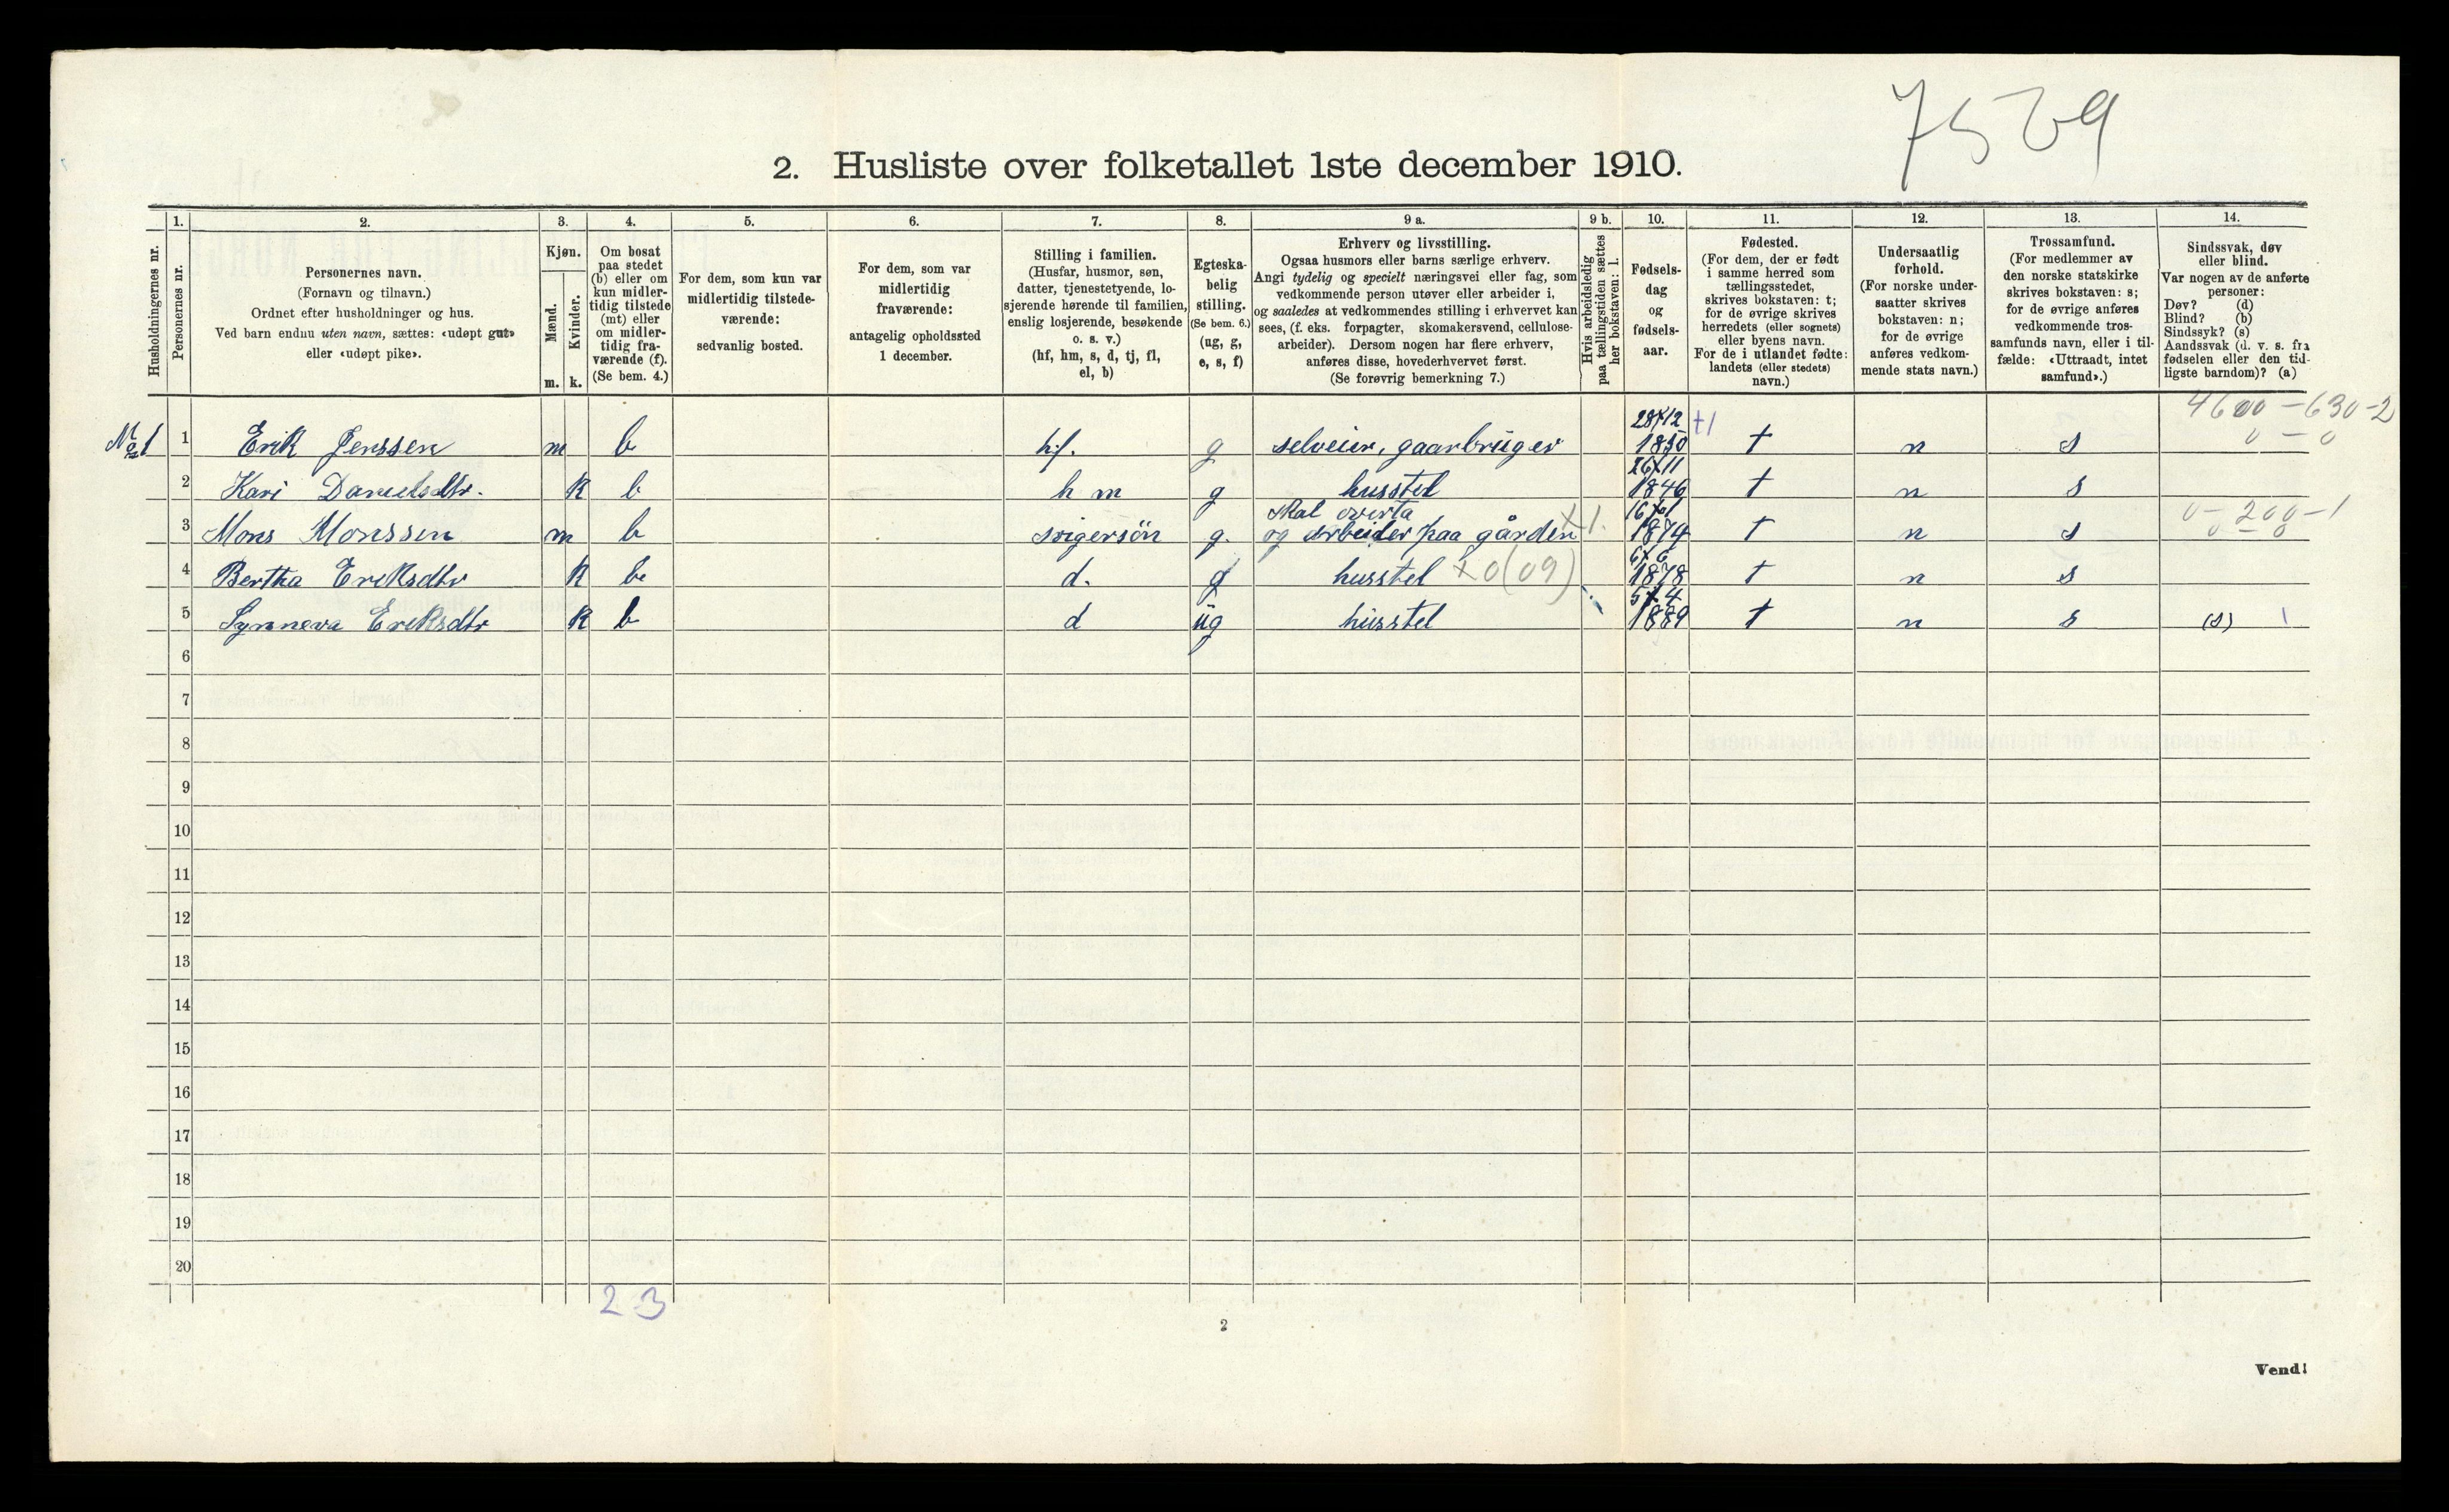 7529
2. Husliste over folketallet 1ste december 1910.
Husholdningernes nr.
1.
Personernes nr.
2.
Personernes navn.
(Fornavn og tilnavn.)
Ordnet efter husholdninger og hus.
Ved barn endnu uten navn, sættes: «udøpt gut»
eller «udøpt pike».
3.
Kjøn.
Mænd.
Kvinder.
m. k.
4.
Om bosat
paa stedet
(b) eller om
kun midler-
tidig tilstede
(mt) eller
om midler-
tidig fra-
værende (f).
(Se bem. 4.)
5.
For dem, som kun var
midlertidig tilstede-
værende:
sedvanlig bosted.
6.
For dem, som var
midlertidig
fraværende:
antagelig opholdssted
1 december.
7.
Stilling i familien.
(Husfar, husmor, søn,
datter, tjenestetyende, lo-
sjerende hørende til familien,
enslig losjerende, besøkende
o. s. v.)
(hf, hm, s, d, tj, fl,
el, b)
8.
Egteska-
belig
stilling.
(Se bem. 6.)
(ug, g,
e, s, f)
9 a.
Erhverv og livsstilling.
Ogsaa husmors eller barns særlige erhverv.
Angi tydelig og specielt næringsvei eller fag, som
vedkommende person utøver eller arbeider i,
og saaledes at vedkommendes stilling i erhvervet kan
sees, (f. eks. forpagter, skomakersvend, cellulose-
arbeider). Dersom nogen har flere erhverv,
anføres disse, hovederhvervet først.
(Se forøvrig bemerkning 7.)
9 b.
Hvis arbeidsledig
paa tællingstiden sættes
her bokstaven: l.
10.
Fødsels-
dag
og
fødsels-
aar.
11.
Fødested.
(For dem, der er født
i samme herred som
tællingsstedet,
skrives bokstaven: t;
for de øvrige skrives
herredets (eller sognets)
eller byens navn.
For de i utlandet fødte:
landets (eller stedets)
navn.)
12.
Undersaatlig
forhold.
(For norske under-
saatter skrives
bokstaven: n;
for de øvrige
anføres vedkom-
mende stats navn.)
13.
Trossamfund.
(For medlemmer av
den norske statskirke
skrives bokstaven: s;
for de øvrige anføres
vedkommende tros-
samfunds navn, eller i til-
fælde: «Uttraadt, intet
samfund».)
14.
Sindssvak, døv
eller blind.
Var nogen av de anførte
personer:
Døv? (d)
Blind? (b)
Sindssyk? (s)
Aandssvak (d. v. s. fra
fødselen eller den tid-
ligste barndom)? (a)
4600-630-2
0-0
No 1 1 Erik Jenssen m b hf. g selveier, gaarbruger 28/12 1830 t n s
2 Kari Danielsdtr. k b h m g husstel 26/11 1846 t n s
skal overta
3 Mons Monssen m b svigersön g. og arbeider paa gården x1. 1874 t n s
0-200-1
0-0
4 Bertha Eriksdtr k b d. g husstel x0(09) 6/6 1878 t n s
5 Synneva Eriksdtr k b d ug husstel 5/4 1889 t n s (s) 1
6
7
8
9
10
11
12
13
14
15
16
17
18
19
20
2 3
2
Vend!